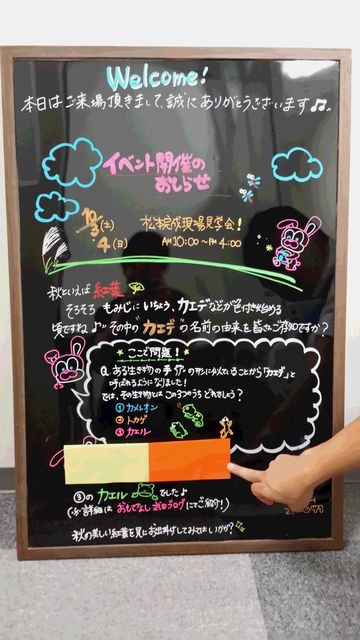 Welcome!
本日はご来場頂きまして、誠にありがとうございます♫
イベント開催の
おしらせ
10/3(土)
4(日)
完成現場見学会!
AM10:00〜PM4:00
秋といえば紅葉
そろそろ もみじに いちょう、カエデなどが色付き始める
頃ですね♪ その中の カエデ の名前の由来を皆さんご存知ですか?
ここで問題!
Q.ある生き物の手の形に似ていることから「カエデ」と
呼ばれるようになりました!
では、その生き物とはこの3つのうちどれでしょう?
①カメレオン
②トカゲ
③カエル
③の カエル でした♪
詳細は おもてなし 秋田ブログ にてご紹介!
秋の美しい紅葉を見にお出掛けしてみてはいかが?